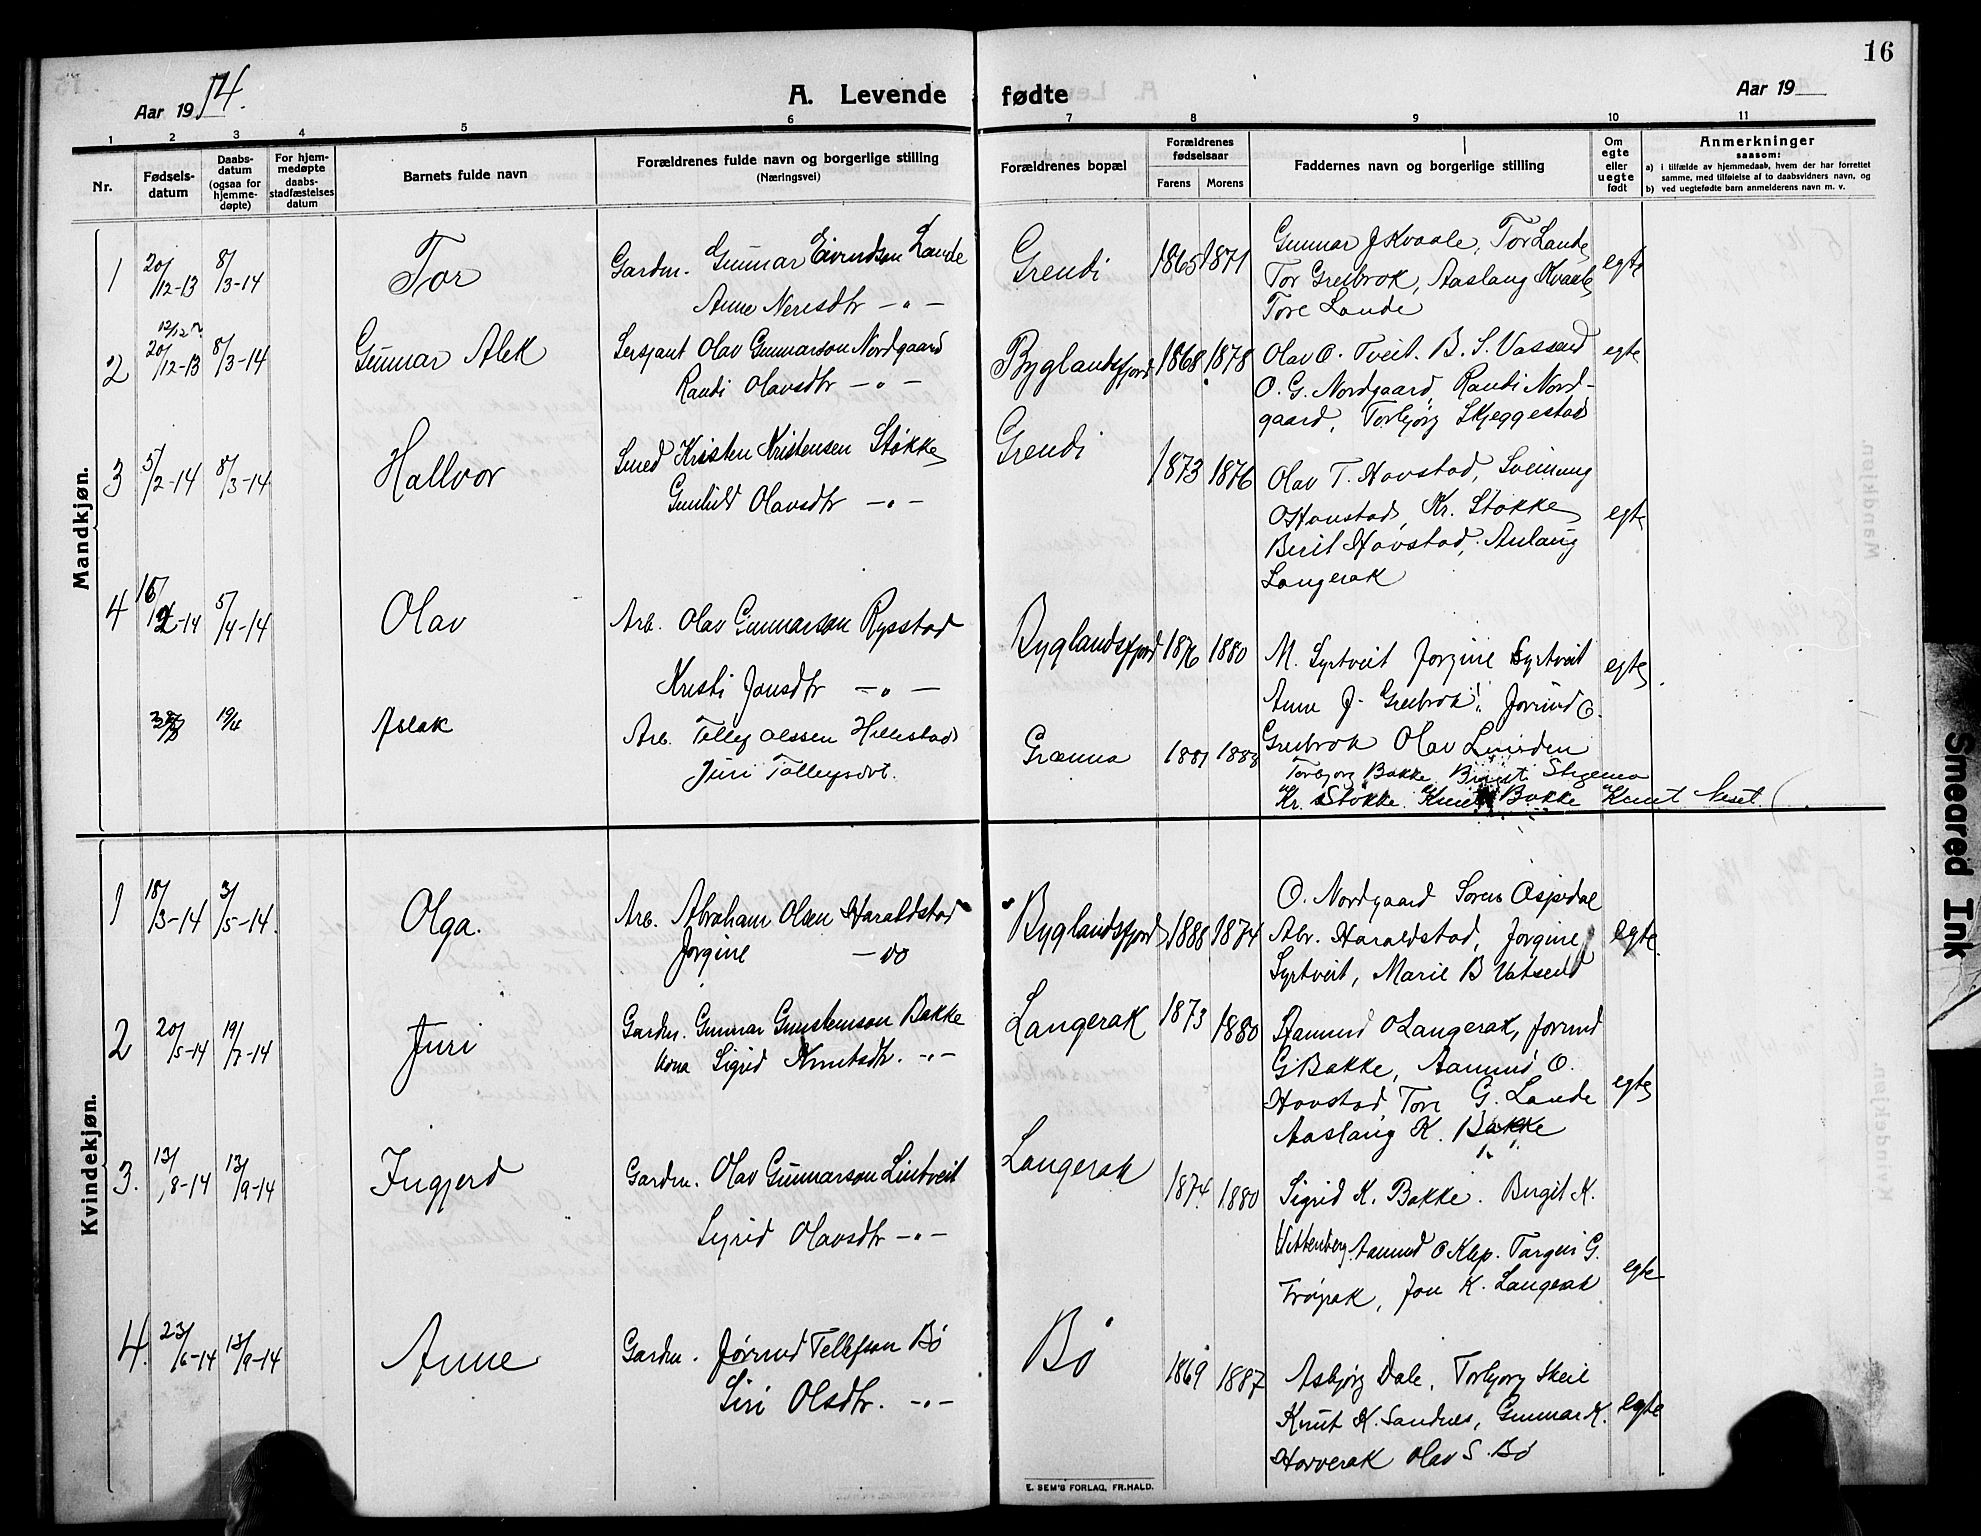 16
Aar 1914.
A. Levende fødte
Aar 19
1 2 3 4 5 6 7 8 9 10 11
Nr.
Fødsels-
datum
Daabs-
datum
(ogsaa for
hjemme-
døpte)
For hjem-
medøpte
daabs-
stadfæstelses
datum
Barnets fulde navn
Forældrenes fulde navn og borgerlige stilling
(Næringsvei)
Forældrenes bopæl
Forældrenes
fødselsaar
Farens Morens
Faddernes navn og borgerlige stilling
Om
egte
eller
uegte
født
Anmerkninger
saasom:
a) i tilfælde av hjemmedaab, hvem der har forrettet
samme, med tilføielse af to daabsvidners navn, og
b) ved uegtefødte barn anmelderens navn m. v.
Mandkjøn.
1 20/12-13 8/3-14 Tor Gardm. Gunnar Eivindson Lande Grendi 1865 1871 Gunnar J Kvaale, Tor Lande, egte
Anne Neresdtr — " — Tor Greibrok, Aaslaug Kvaale,
Tore Lande
12/12
2 20/12-13 8/3-14 Gunnar Alek Sersjant Olav Gunnarson Nordgaard Byglandsfjord 1868 1878 Olav O. Tveit. B. S. Vassend egte
Randi Olavsdtr — " — O. G. Nordgaard, Randi Nord-
gaard, Torbjørg Skjeggestad
3 5/2-14 8/3-14 Hallvor Smed Kristen Kristensen Støkke Grendi 1873 1876 Olav T. Hovstad, Sveinung
Gunhild Olavsdtr — " — O Hovstad, Kr. Støkke egte
Berit Hovstad, Aslaug
Langerak
4 16/2-14 5/4-14 Olav Arb. Olav Gunnarson Rysstad Byglandsfjord 1876 1880 M. Syrtveit Jorgine Syrtveit egte
Kristi Jonsdtr — " — Anne J. Greibrok, Jorund O.
19/4 Aslak Arb. Tolleg Olssen Hillestad Grænna 1881 1888 Greibrok Olav Linden
Juri Tollegsdot. Torbjorg Bakke
Kr. Støkke Knut Bakke Knut Neset
Kvindekjøn.
1 18/3-14 3/5-14. Olga. Arb. Abraham Olsen Haraldstad Byglandsfjord 1888 1874 O. Nordgaard Soren Ospedal
Jorgine — do Abr. Haraldstad, Jorgine egte.
Syrtveit, Marie B Vatsend
2 20/5-14 19/7-14 Juri Gardm. Gunnar Gunstenson Bakke Langerak 1873 1880 Aamund O Langerak, Jorund
Kona Sigrid Knutsdtr. — " — G Bakke, Aamund O.
Hovstad, Tore G. Lande egte
Aaslaug K. Bakke
3. 13/8-14 13/9-14 Ingjerd Gardm. Olav Gunnarson Lintveit Langerak 1874. 1880 Sigrid K. Bakke. Birgit K.
Sigrid Olavsdtr — " — Vittenberg, Aamund O Klep. Targeir G.
Frøyrak, Jon K. Langerak egte
4. 23/6-14 13/9-14 Anne Gardm. Jørund Tellefson Bø Bø 1869 1887 Asbjørg Dale, Torbjorg Skeie
Siri Olsdtr. — " — Knut K. Sandnes, Gunnar K. egte
Horverak Olav S. Bø
E. SEM'S FORLAG, FR.HALD.
Smeared Ink